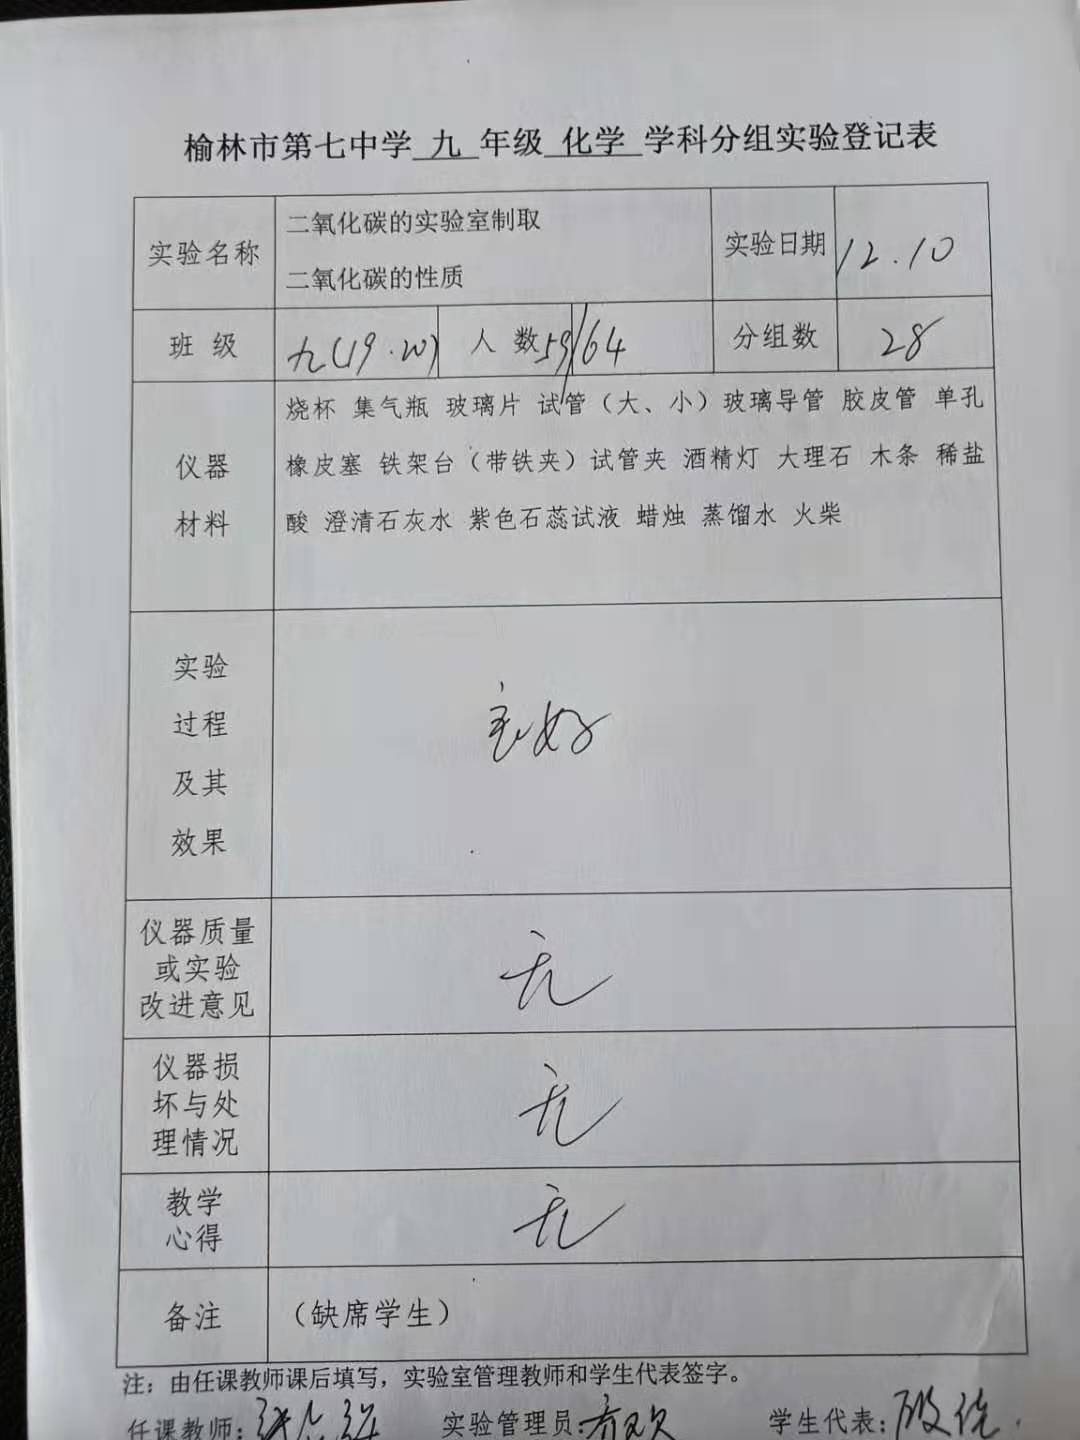 榆林市第七中学 九 年级 化学 学科分组实验登记表
实验名称
二氧化碳的实验室制取
二氧化碳的性质
实验日期
12.10
班 级
九(19.20)
人 数
59/64
分组数
28
仪器
材料
烧杯 集气瓶 玻璃片 试管（大、小）玻璃导管 胶皮管 单孔
橡皮塞 铁架台（带铁夹）试管夹 酒精灯 大理石 木条 稀盐
酸 澄清石灰水 紫色石蕊试液 蜡烛 蒸馏水 火柴
实验
过程
及其
效果
良好
仪器质量
或实验
改进意见
无
仪器损
坏与处
理情况
无
教学
心得
无
备注
（缺席学生）
注：由任课教师课后填写，实验室管理教师和学生代表签字。
任课教师：
实验管理员：
学生代表：